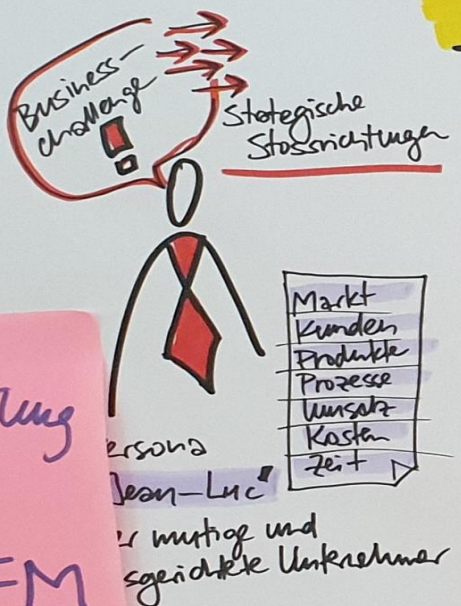 Business-
challenge
Strategische
Stossrichtungen
Markt
Kunden
Produkte
Prozesse
Umsatz
Kosten
Zeit
ersona
Jean-Luc"
r mutige und
sgerichtete Unternehmer
lung
FM